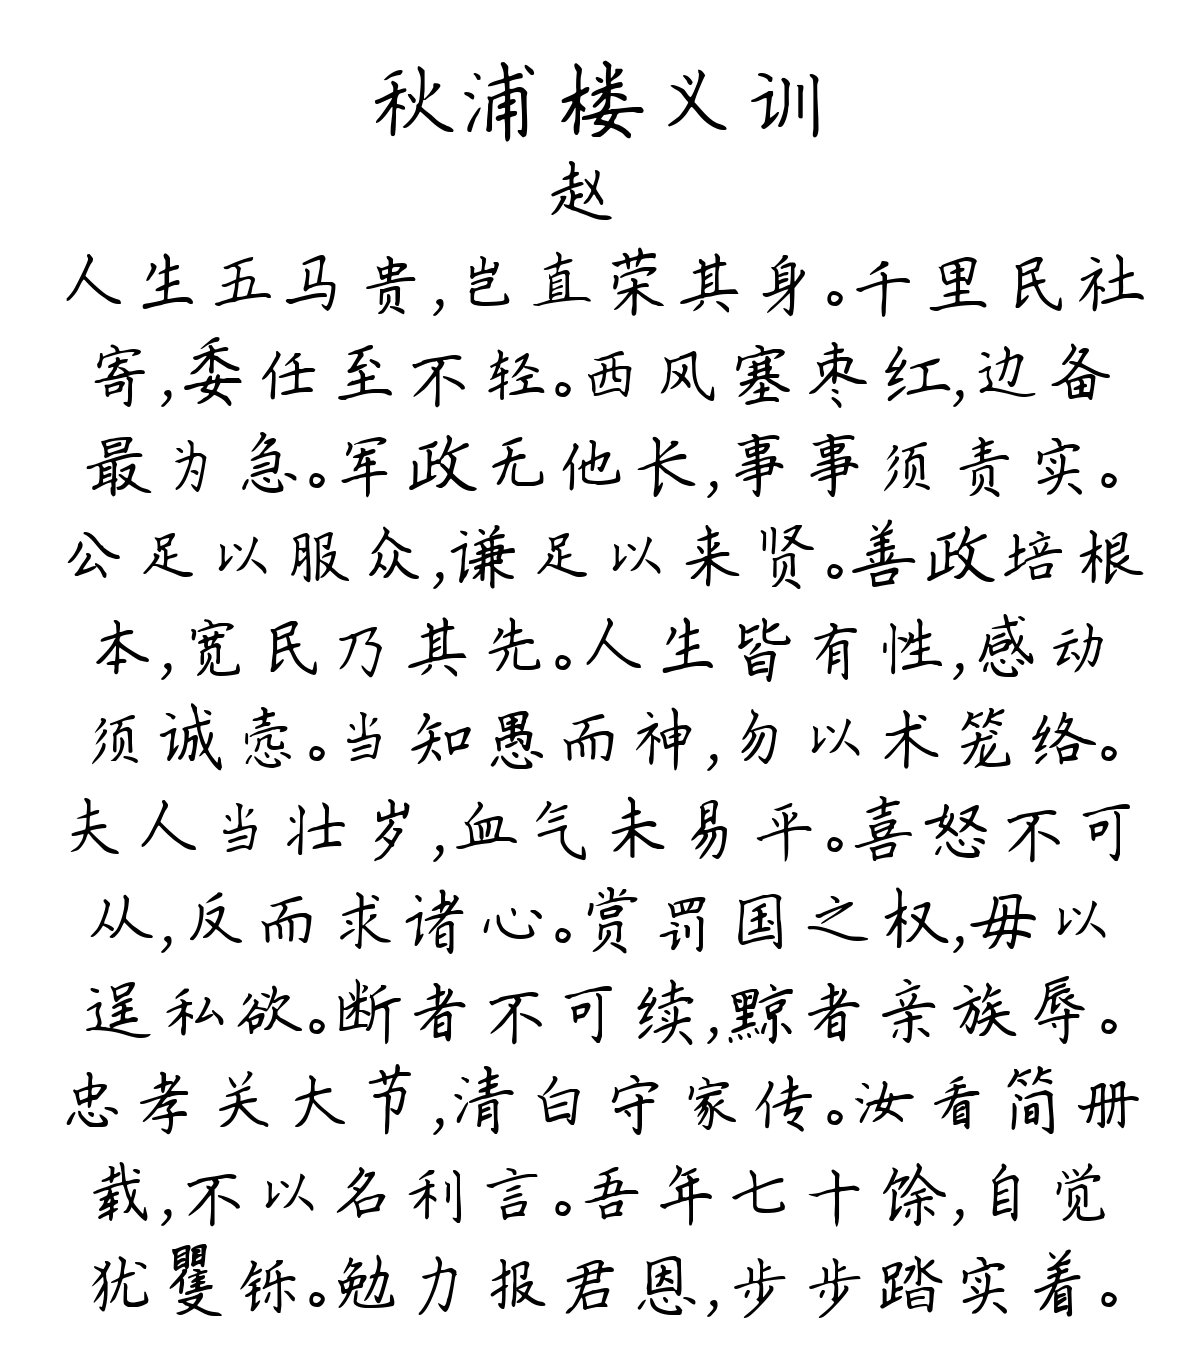 秋浦楼义训
赵
人生五马贵,岂直荣其身。千里民社
寄,委任至不轻。西风塞枣红,边备
最为急。军政无他长,事事须责实。
公足以服众,谦足以来贤。善政培根
本,宽民乃其先。人生皆有性,感动
须诚悫。当知愚而神,勿以术笼络。
夫人当壮岁,血气未易平。喜怒不可
从,反而求诸心。赏罚国之权,毋以
逞私欲。断者不可续,黥者亲族辱。
忠孝关大节,清白守家传。汝看简册
载,不以名利言。吾年七十馀,自觉
犹矍铄。勉力报君恩,步步踏实着。